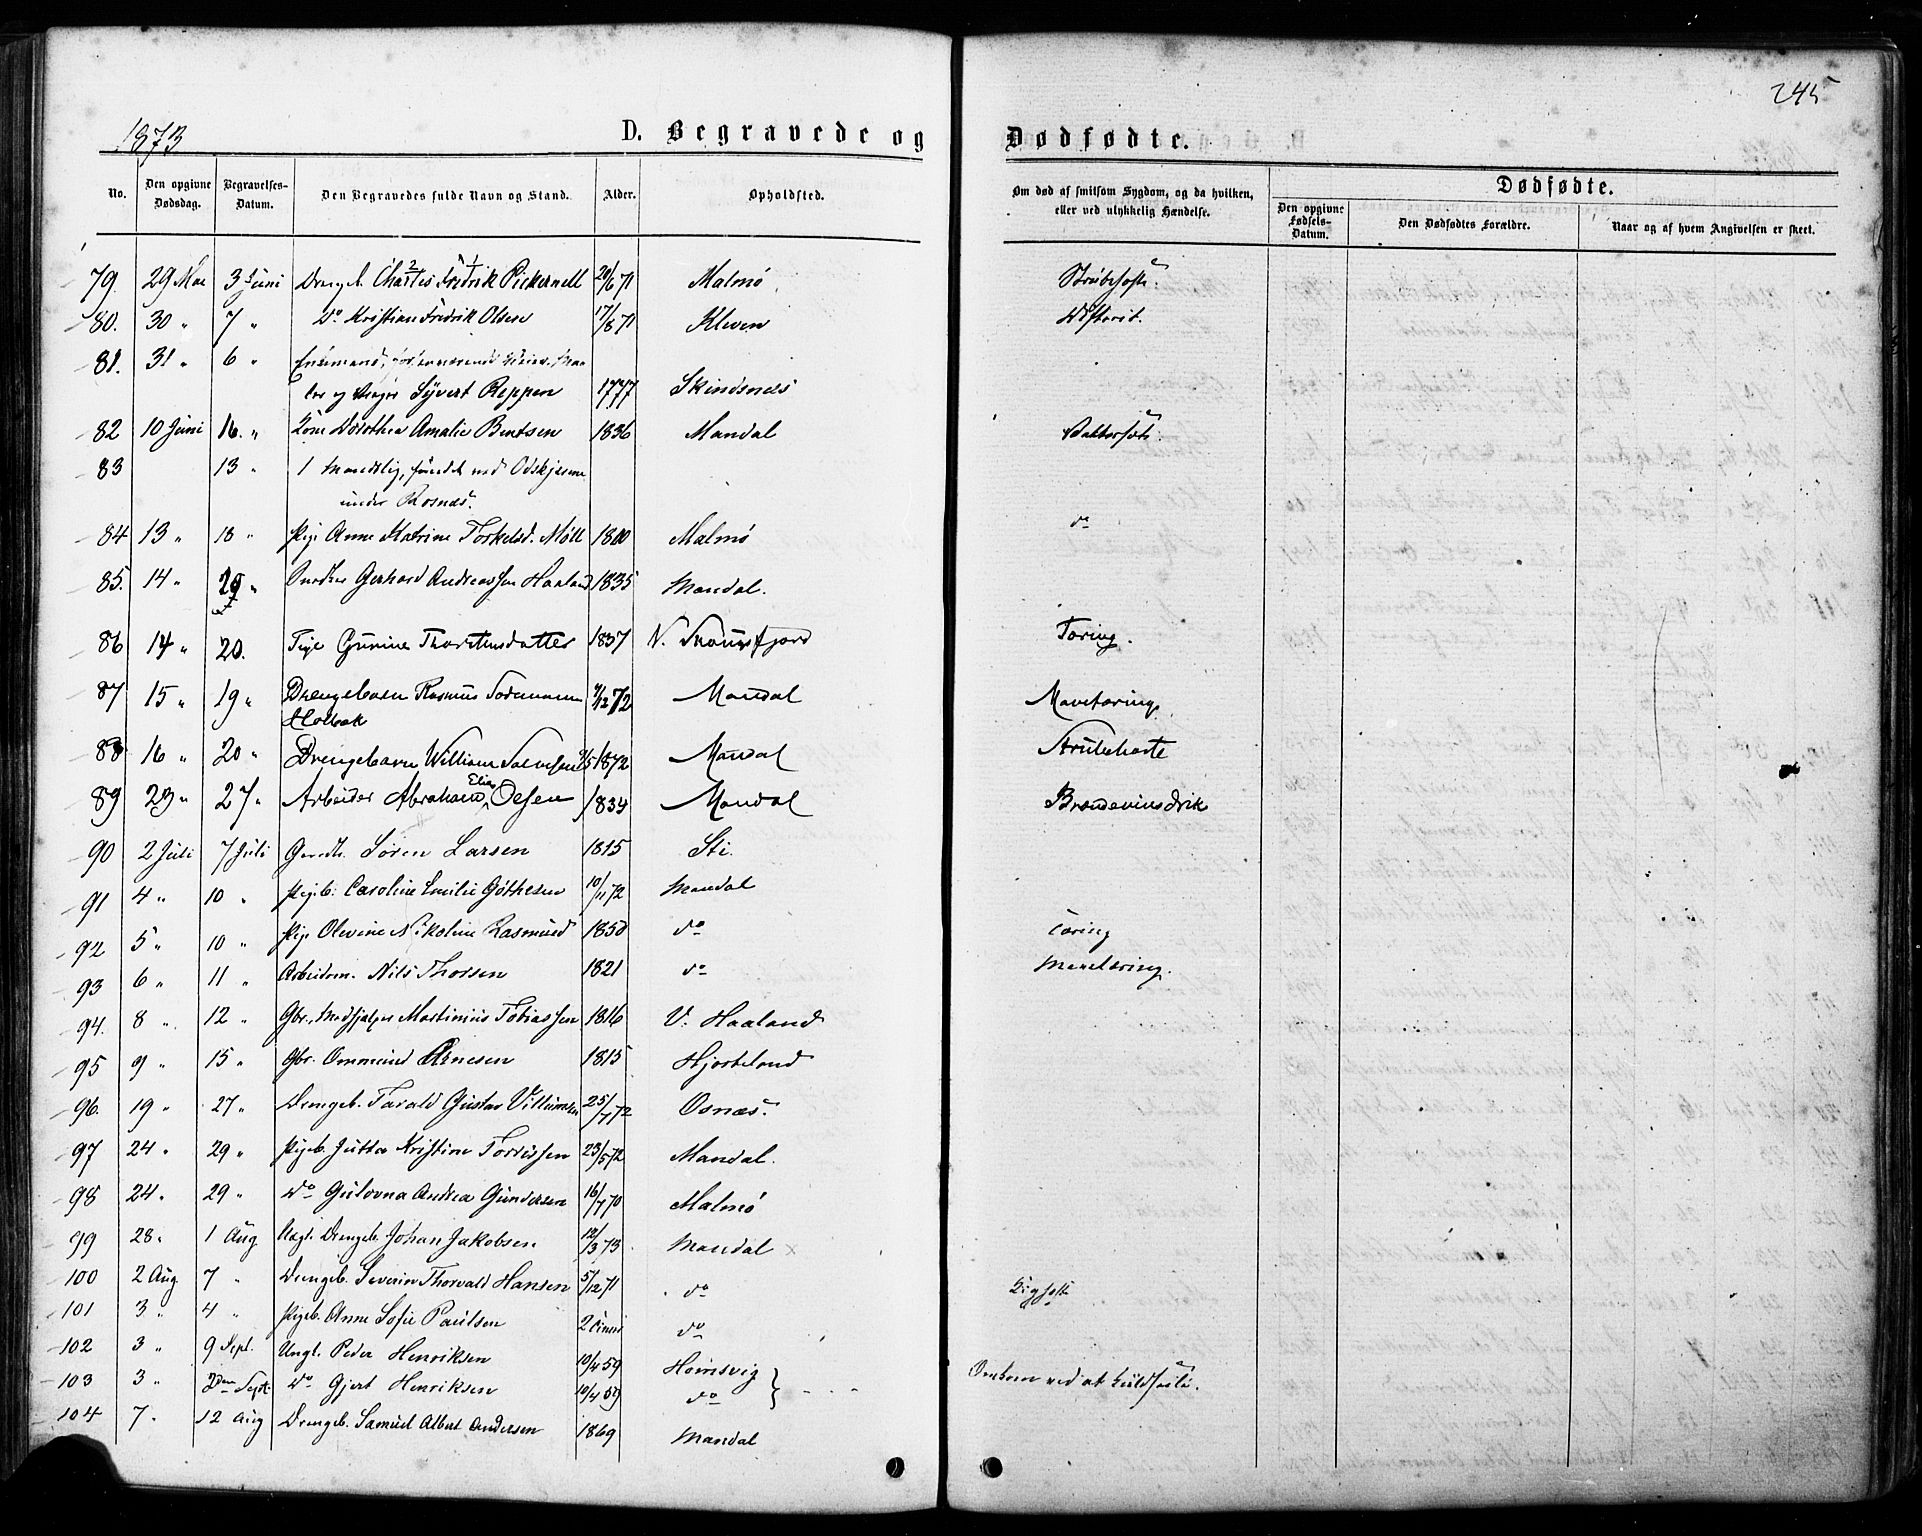 245
1873
D. Begravede og Dødfødte.
No. Den opgivne Dødsdag. Begravelses-Datum. Den Begravedes fulde Navn og Stand. Alder. Opholdsted. Om død af smitsom Sygdom, og da hvilken, eller ved ulykkelig Hændelse. Dødfødte. Den opgivne Fødsels-Datum. Den Dødfødtes Forældre. Naar og af hvem Angivelsen er skeet.
79. 29 Mai 3 Juni Drengeb. Charles Fredrik Pickernell 20/6 71 Malmø Strubehoste.
80. 30 " 7 " Do Kristian Fredrik Olsen 17/8 71 Kleven
81. 31 " 6 " Enkemand,
og Major Syvert Reppen 1777 Skinsnes
82 10 Juni 16. " Kone Dorothea Amalie Bentsen 1836 Mandal Vattersot.
83 13 " 1 Mandslig, fundet ved Odskjærene
under Rosnæs.
84 13 " 18 " Pige Anne Katrine Torkelsd. Møll 1800 Malmø do
85. 14 " 20 " Gerhard Andreassen Haaland 1835 Mandal.
86 14 " 20. Pige Gurine Thorstensdatter 1837 N. Skougsfjord Tæring.
87 15 " 19 " Drengebarn Rasmus Torenensen /12 72 Mandal Mavetæring.
Holbæk
88 16 " 20 " Drengebarn William Salvesen /5 1872 Mandal Strubehoste
89 23 " 27 " Arbeider Abraham Elias Olsen 1834 Mandal Brændevinsdrik
90 2 Juli 7 Juli Gaardbr. Søren Larsen 1815 Sti.
91 4 " 10 " Pigeb. Caroline Emilie Gøthesen 10/11 72 Mandal
92 5 " 10 " Pige Olevine Nikoline Rasmusd 1850 do Tæring
93 6 " 11 " Arbeidsm. Nils Thorsen 1821 do Mavetæring.
94. 8 " 12 " Gbr., Medhjælper Martinius Tobiassen 1816 V. Haaland
95 9 " 15 " Gbr. Ommund Arnesen 1815 Hjorteland
96. 19 " 27 " Drengeb. Tarald Gustav Villumsen 25/7 72 Osnæs.
97 24 " 29 " Pigeb. Jutta Kristine Torrissen 23/5 72 Mandal.
98 24 " 29 " Do Gulovna Andrea Gundersen 16/7 70 Malmø
99 28 " 1 Aug Uægt. Drengeb. Johan Jakobsen 12/3 73 Mandal x
100 2 Aug 7 " Drengeb. Severin Thorvald Hansen 5/12 71 do Kighoste
101 3 " 4 " Pigeb. Anne Sofie Paulsen 2 Timer do
102 3 " 9 Sept. Ungk. Peder Henriksen 10/4 59 Homsvig
103 3 " 2den Sept. Do Gjert Henriksen 10/4 59 do Omkom ved at kuldseile.
104 7 " 12 Aug Drengeb. Samuel Albert Andersen 1869 Mandal